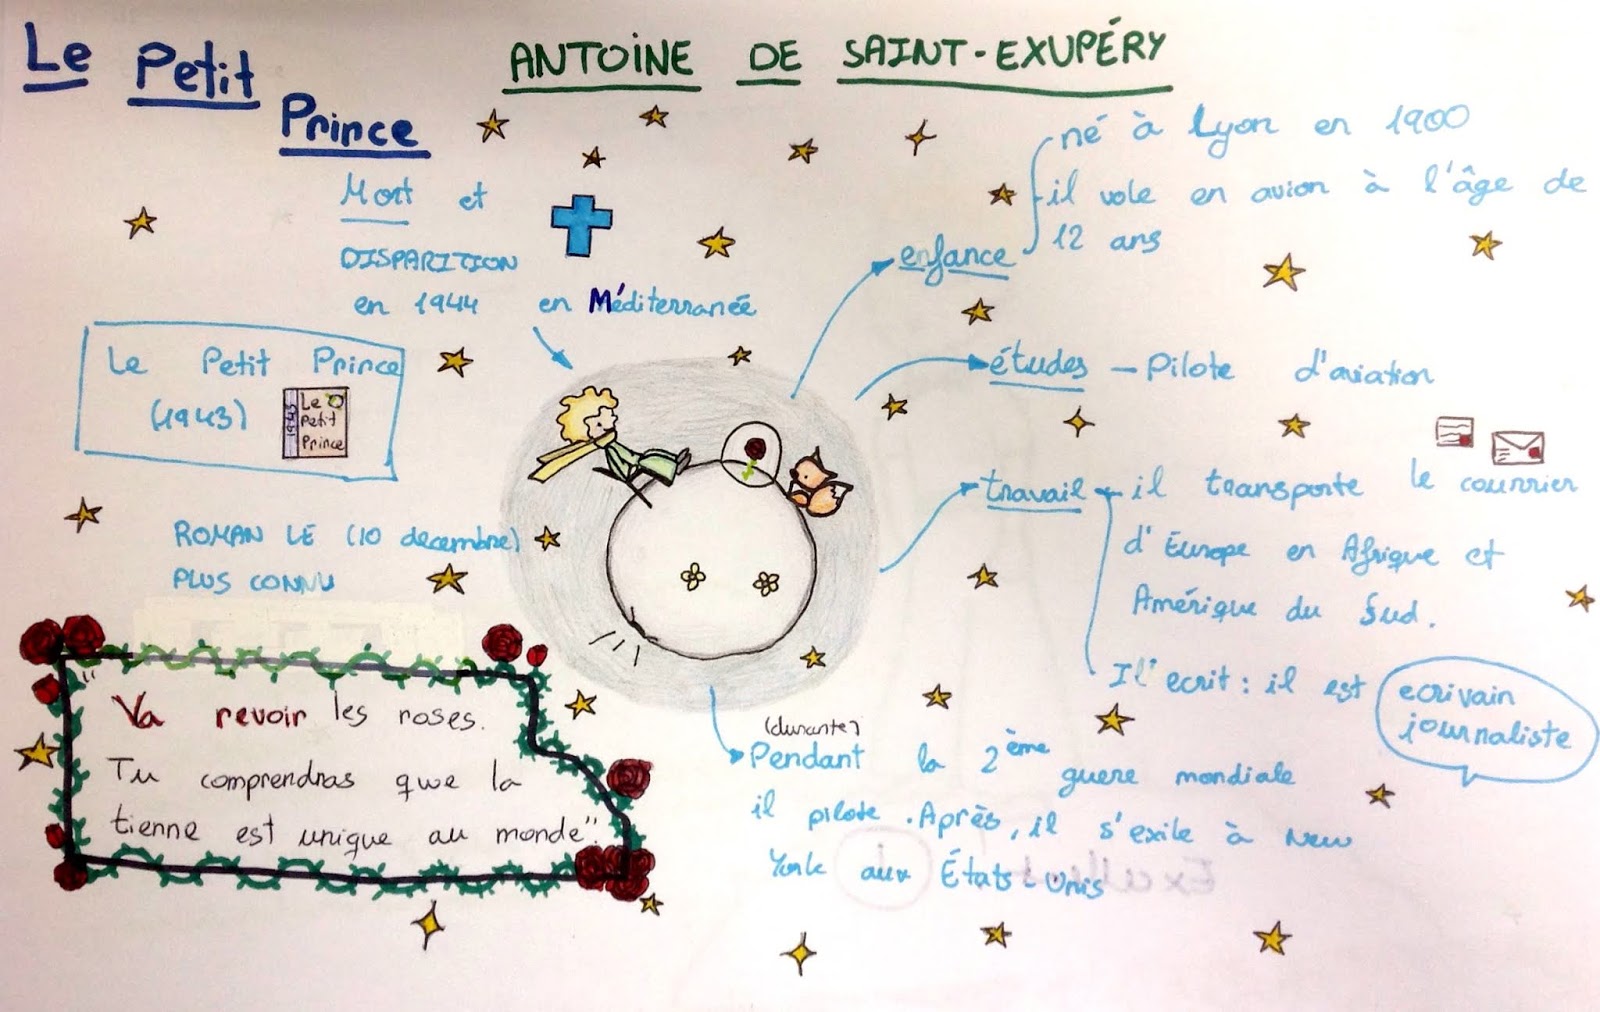 Le Petit Prince
ANTOINE DE SAINT-EXUPÉRY
Mort et
DISPARITION
en 1944 en Méditerranée
enfance
né à Lyon en 1900
il vole en avion à l'âge de
12 ans
études - Pilote d'aviation
travail
il transporte le courrier
d'Europe en Afrique et
Amérique du Sud.
Il ecrit: il est ecrivain
journaliste
(durante)
Pendant la 2ème guere mondiale
il pilote. Après, il s'exile à New
York aux États-Unis
Le Petit Prince
(1943)
1943
Le
Petit
Prince
ROMAN LE (10 decembre)
PLUS CONNU
"Va revoir les roses.
Tu comprendras qwe la
tienne est unique au monde".